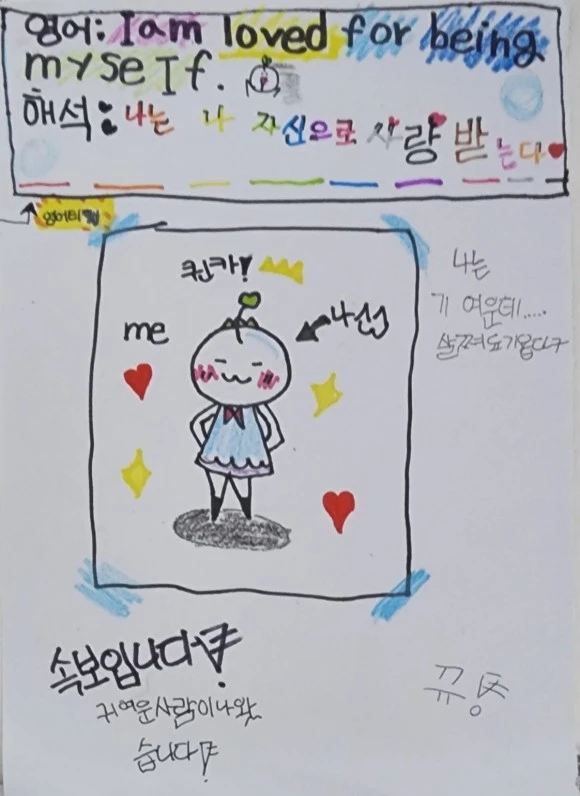 영어: I am loved for being
myself.
해석: 나는 나 자신으로 사랑 받는다
퀸카!
me
나선
나는
기 여운데....
살쪄도 기옵다구
속보입니다!
귀여운사람이나왔
습니다!
뀨